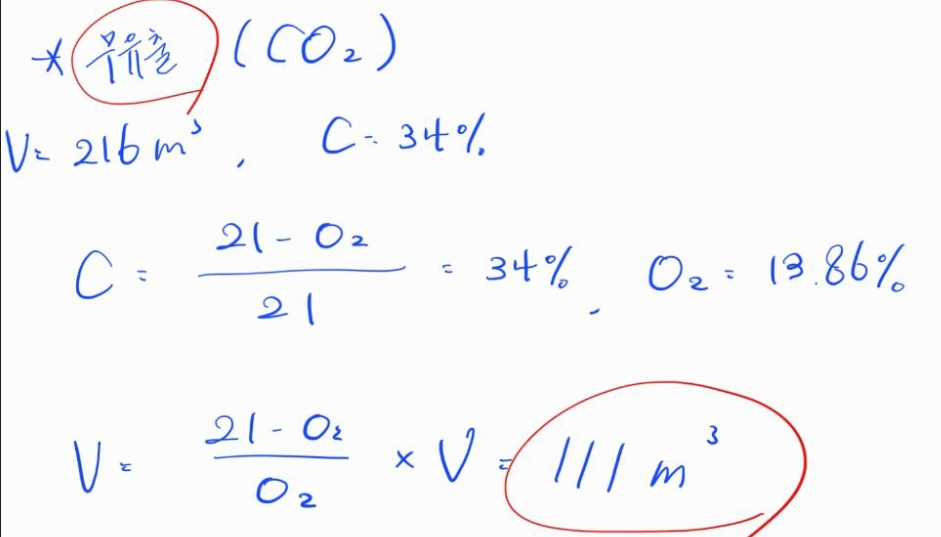 * 무유출 (CO₂)
V = 216 m³, C = 34%
C = (21 - O₂) / 21 = 34%, O₂ = 13.86%
V = (21 - O₂) / O₂ × V = 111 m³